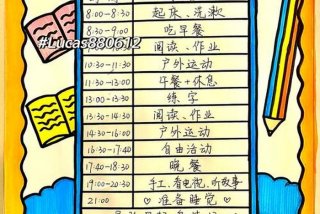 8:00-8:30 起床、洗漱
8:30-9:00 吃早餐
#Lucas880612
阅读、作业
10:30-11:30 户外运动
11:30-13:00 午餐+休息
13:00-13:30 练字
13:30-14:30 阅读、作业
14:30-16:00 户外运动
16:30-17:40 自由活动
17:40-18:30 晚餐
19:00-20:30 手工、看电视、听故事
21:00 准备睡觉